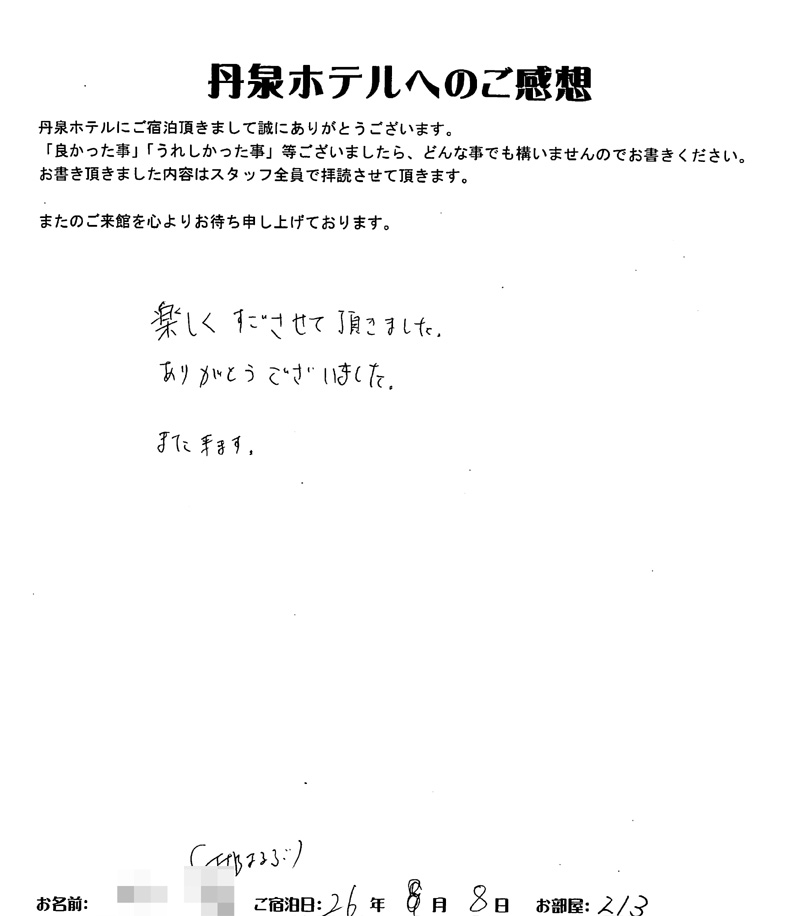 丹泉ホテルへのご感想
丹泉ホテルにご宿泊頂きまして誠にありがとうございます。
「良かった事」「うれしかった事」等ございましたら、どんな事でも構いませんのでお書きください。
お書き頂きました内容はスタッフ全員で拝読させて頂きます。
またのご来館を心よりお待ち申し上げております。
楽しくすごさせて頂きました。
ありがとうございました。
また来ます。
お名前: ご宿泊日:26年 8月 8日 お部屋:213